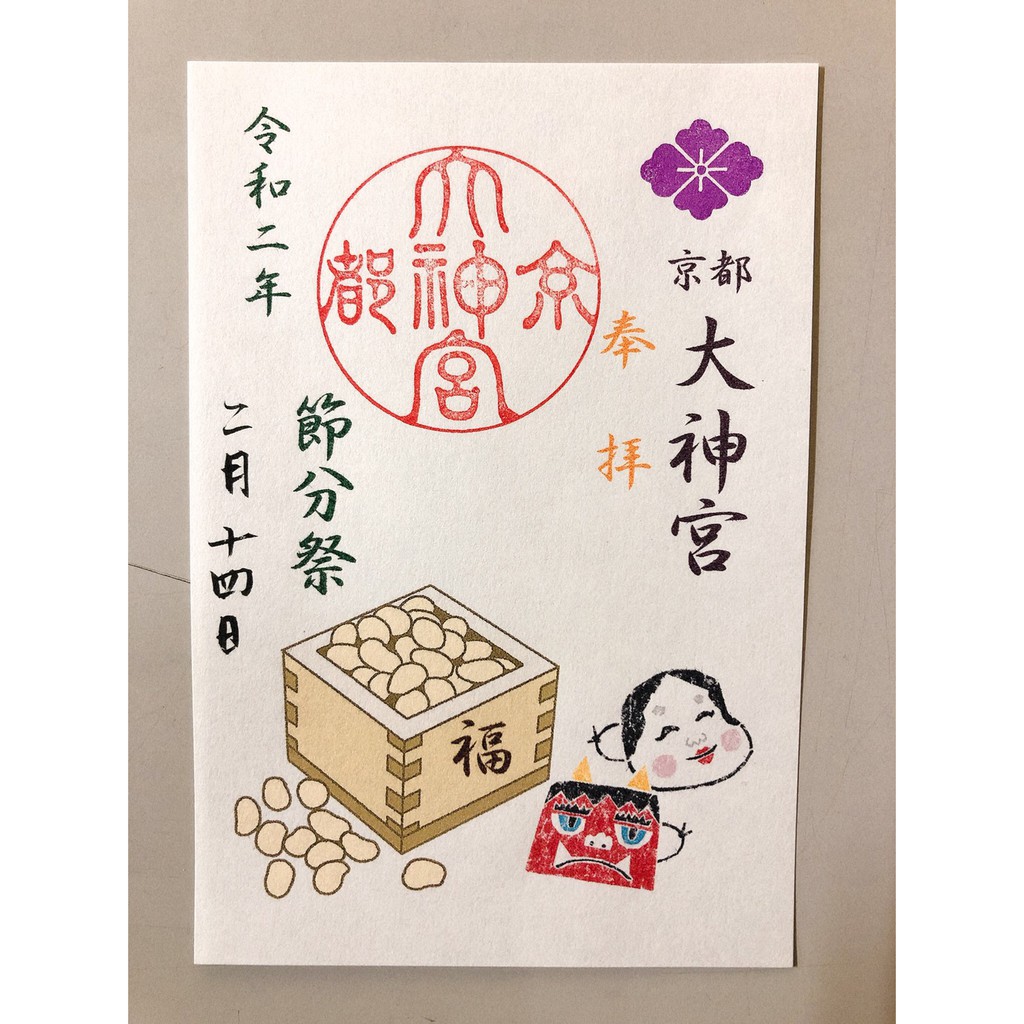 京都
大神宮
奉拝
大
京神都
宮
節分祭
令和二年
二月十四日
福